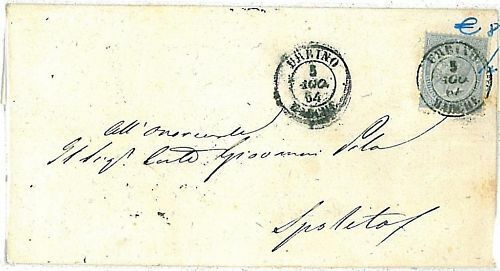 € 8
URBINO
5
AGO
64
MARCHE
URBINO
5
AGO
64
MARCHE
All'Onorevole
Il Sigr. Conte Giovanni Pila
Spoleto